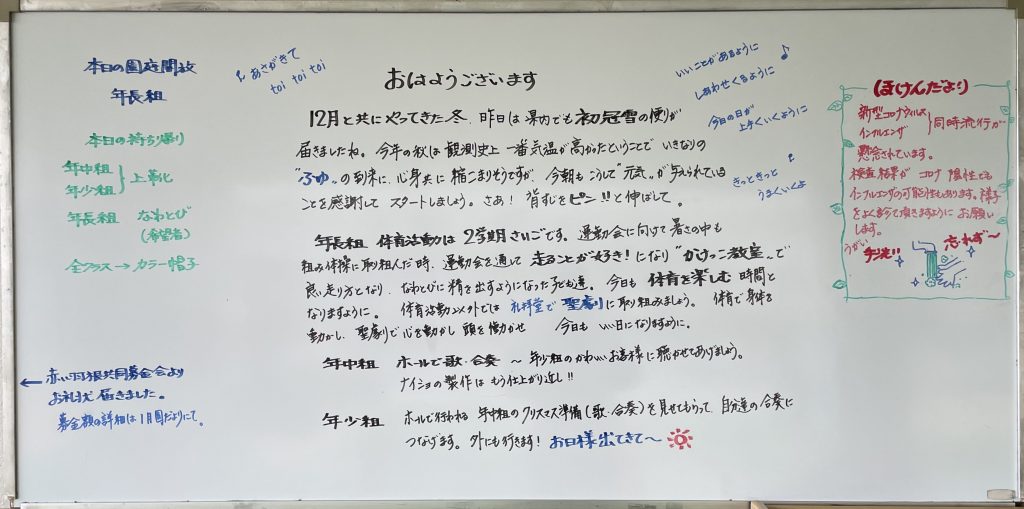 本日の園庭開放
年長組
本日の持ち帰り
年中組
年少組
上靴
年長組 なわとび
(希望者)
全クラス→カラー帽子
← 赤い羽根共同募金会より
お礼状届きました。
募金額の詳細は1月園だよりにて。
♪あさがきて
toi toi toi
おはようございます
12月と共にやってきた冬、昨日は県内でも初冠雪の便りが
届きましたね。今年の秋は観測史上一番気温が高かったということで いきなりの
"ふゆ"の到来に、心身共に縮こまりそうですが、今朝もこうして"元気"が与えられている
ことを感謝して スタートしましょう。さあ!背すじをピン!!と伸ばして。
年長組 体育活動は2学期さいごです。運動会に向けて暑さの中も
組み体操に取り組んだ時、運動会を通して走ることが好き!になり"かけっこ教室"で
良い走り方となり、なわとびに精を出すようになった子ども達。今日も体育を楽しむ時間と
なりますように。体育活動以外では 礼拝堂で聖劇に取り組みましょう。体育で身体を
動かし、聖劇で心を動かし 頭を働かせ 今日も いい日になりますように。
年中組 ホールで歌・合奏 〜 年少組のかわいいお客様に聴かせてあげましょう。
ナイショの製作は もう仕上がり近し!!
年少組 ホールで行われる 年中組のクリスマス準備(歌・合奏)を見せてもらって、自分達の合奏に
つなげます。外にも行きます!お日様出てきて〜
いいことがあるように ♪
しあわせくるように
今日の日が
上手くいくように
♪
きっときっと
うまくいくよ
(ほけんだより)
新型コロナウィルス
インフルエンザ
同時流行が
懸念されています。
検査結果が コロナ 陰性でも
インフルエンザの可能性もあります。様子
をよく診て頂きますように お願い
します。
うがい
手洗い
忘れず〜